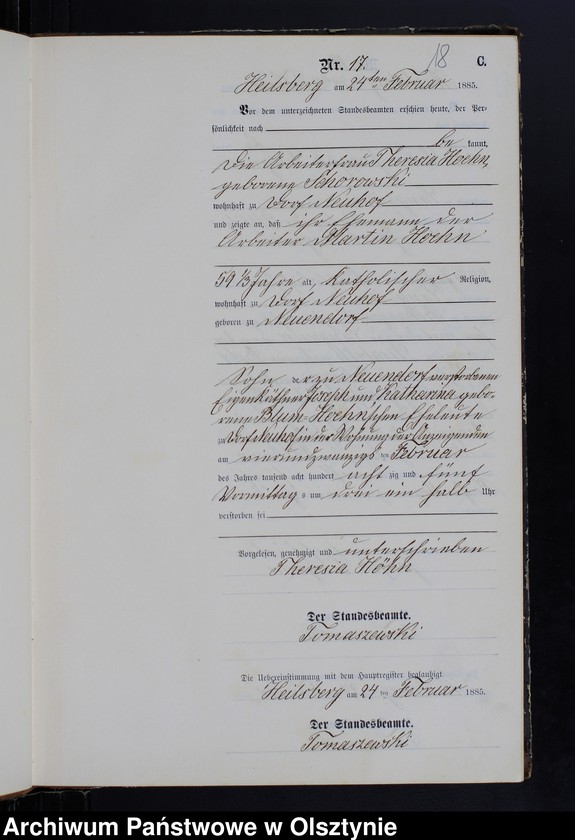 18
Nr. 17. C.
Heilsberg am 24ten Februar 1885.
Vor dem unterzeichneten Standesbeamten erschien heute, der Per-
sönlichkeit nach
be kannt,
die Arbeiterfrau Theresia Hoehn,
geborene Schorowski
wohnhaft zu Dorf Neuhof
und zeigte an, daß ihr Ehemann der
Arbeiter Martin Hoehn
59 1/3 Jahre alt, katholischer Religion,
wohnhaft zu Dorf Neuhof
geboren zu Neuendorf
Sohn der zu Neuendorf verstorbenen
Eigenkäthner Joseph und Katharina gebo-
rene Blum-Hoehn'schen Eheleute
zu Dorf Neuhof in der Wohnung der Anzeigenden
am vierundzwanzigsten Februar
des Jahres tausend acht hundert achtzig und fünf
Vormittags um drei ein halb Uhr
verstorben sei
Vorgelesen, genehmigt und unterschrieben
Theresia Höhn
Der Standesbeamte.
Tomaszewski
Die Uebereinstimmung mit dem Hauptregister beglaubigt
Heilsberg am 24ten Februar 1885.
Der Standesbeamte.
Tomaszewski
Archiwum Państwowe w Olsztynie